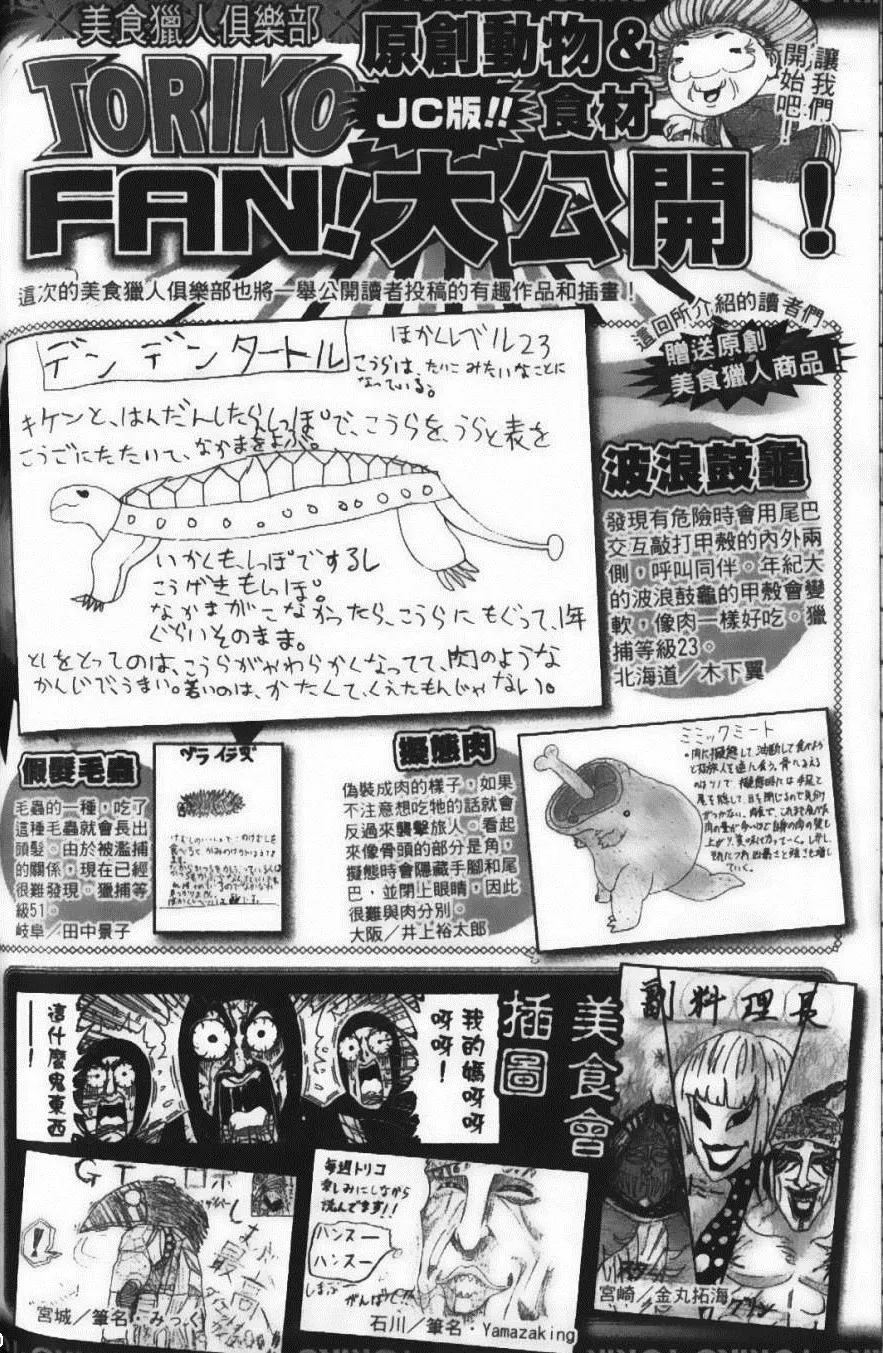 美食獵人俱樂部
TORIKO
FAN!
原創動物&
JC版!! 食材
大公開!
讓我們
開始吧!
這次的美食獵人俱樂部也將一舉公開讀者投稿的有趣作品和插畫!
這回所介紹的讀者們
贈送原創
美食獵人商品!
デンデンタートル
ほかくレベル23
こうらは、たいこみたいなことに
なっている。
キケンと、はんだんしたら、しっぽで、こうらを、うらと表を
こうごにたたいて、なかまをよぶ。
いかくも、しっぽでするし
こうげきもしっぽ。
なかまがこなかったら、こうらにもぐって、1年
ぐらいそのまま。
としをとってのは、こうらがやわらかくなってて、肉のような
かんじで、うまい。若いのは、かたくて、くえたもんじゃない。
波浪鼓龜
發現有危險時會用尾巴
交互敲打甲殼的內外兩
側,呼叫同伴。年紀大
的波浪鼓龜的甲殼會變
軟,像肉一樣好吃。獵
捕等級23。
北海道/木下翼
假髮毛蟲
毛蟲的一種,吃了
這種毛蟲就會長出
頭髮。由於被濫捕
的關係,現在已經
很難發現。獵捕等
級51。
岐阜/田中景子
擬態肉
偽裝成肉的樣子,如果
不注意想吃牠的話就會
反過來襲擊旅人。看起
來像骨頭的部分是角,
擬態時會隱藏手腳和尾
巴,並閉上眼睛,因此
很難與肉分別。
大阪/井上裕太郎
ミミックミート
美食會
插圖
我的媽呀呀
呀呀!
這什麼鬼東西
——!
副料理長
宮崎/金丸拓海
GTロボ
最高
宮城/筆名·みっく
毎週トリコ
楽しみにしながら
読んでます!!
ハンスー
ハンスー
石川/筆名·Yamazaking